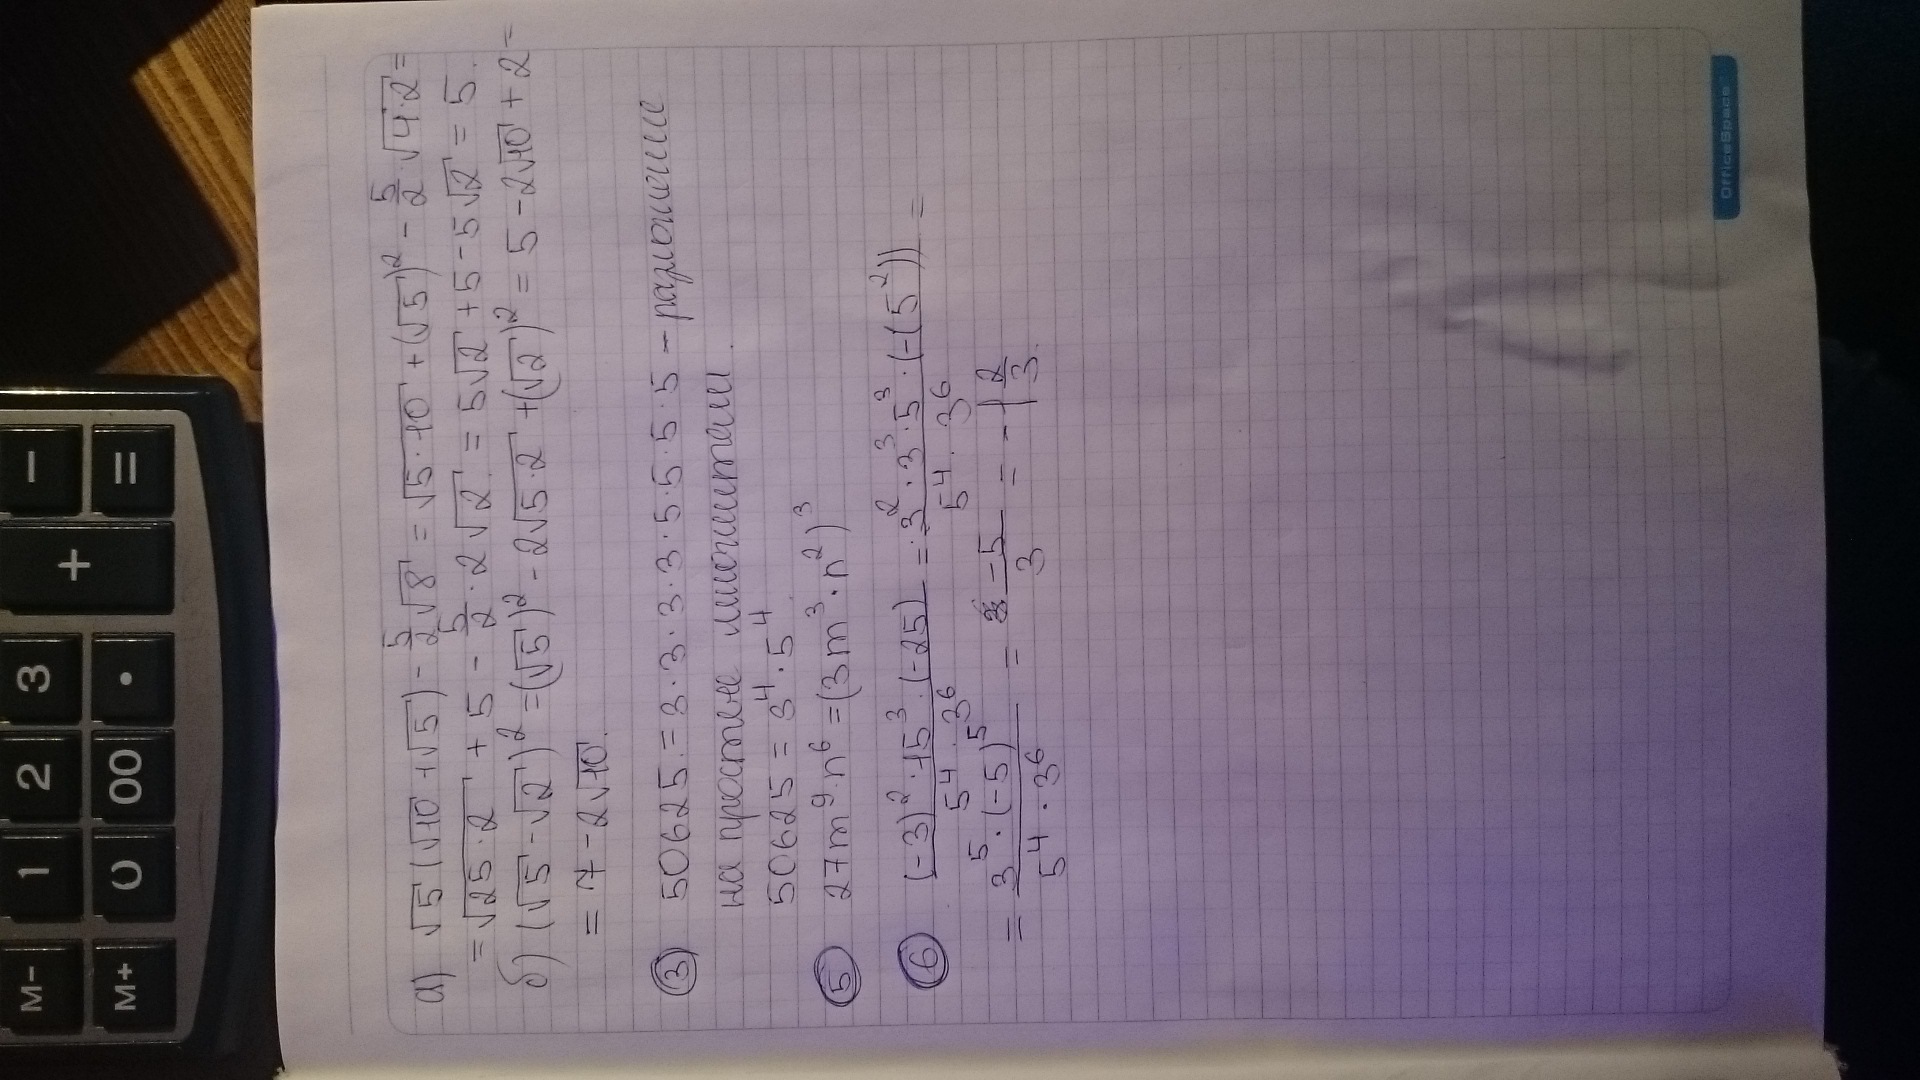 а) √5(√10+√5) - 5/2√8 = √5·10 + (√5)² - 5/2·√4·2 =
= √25·2 + 5 - 5/2·2√2 = 5√2 + 5 - 5√2 = 5.
б) (√5-√2)² = (√5)² - 2√5·2 + (√2)² = 5 - 2√10 + 2 =
= 7 - 2√10.
③ 50625 = 3·3·3·3·5·5·5·5 - разложение
на простые множители.
50625 = 3⁴·5⁴
⑤ 27m⁹·n⁶ = (3m³·n²)³
⑥ (-3)²·15³·(-25) / 5⁴·3⁶ = 3²·3³·5³·(-(5²)) / 5⁴·3⁶ =
= 3⁵·(-5)⁵ / 5⁴·3⁶ = -5/3 = -1 2/3.
OfficeSpace
M- 1 2 3 + -
M+ 0 00 . =